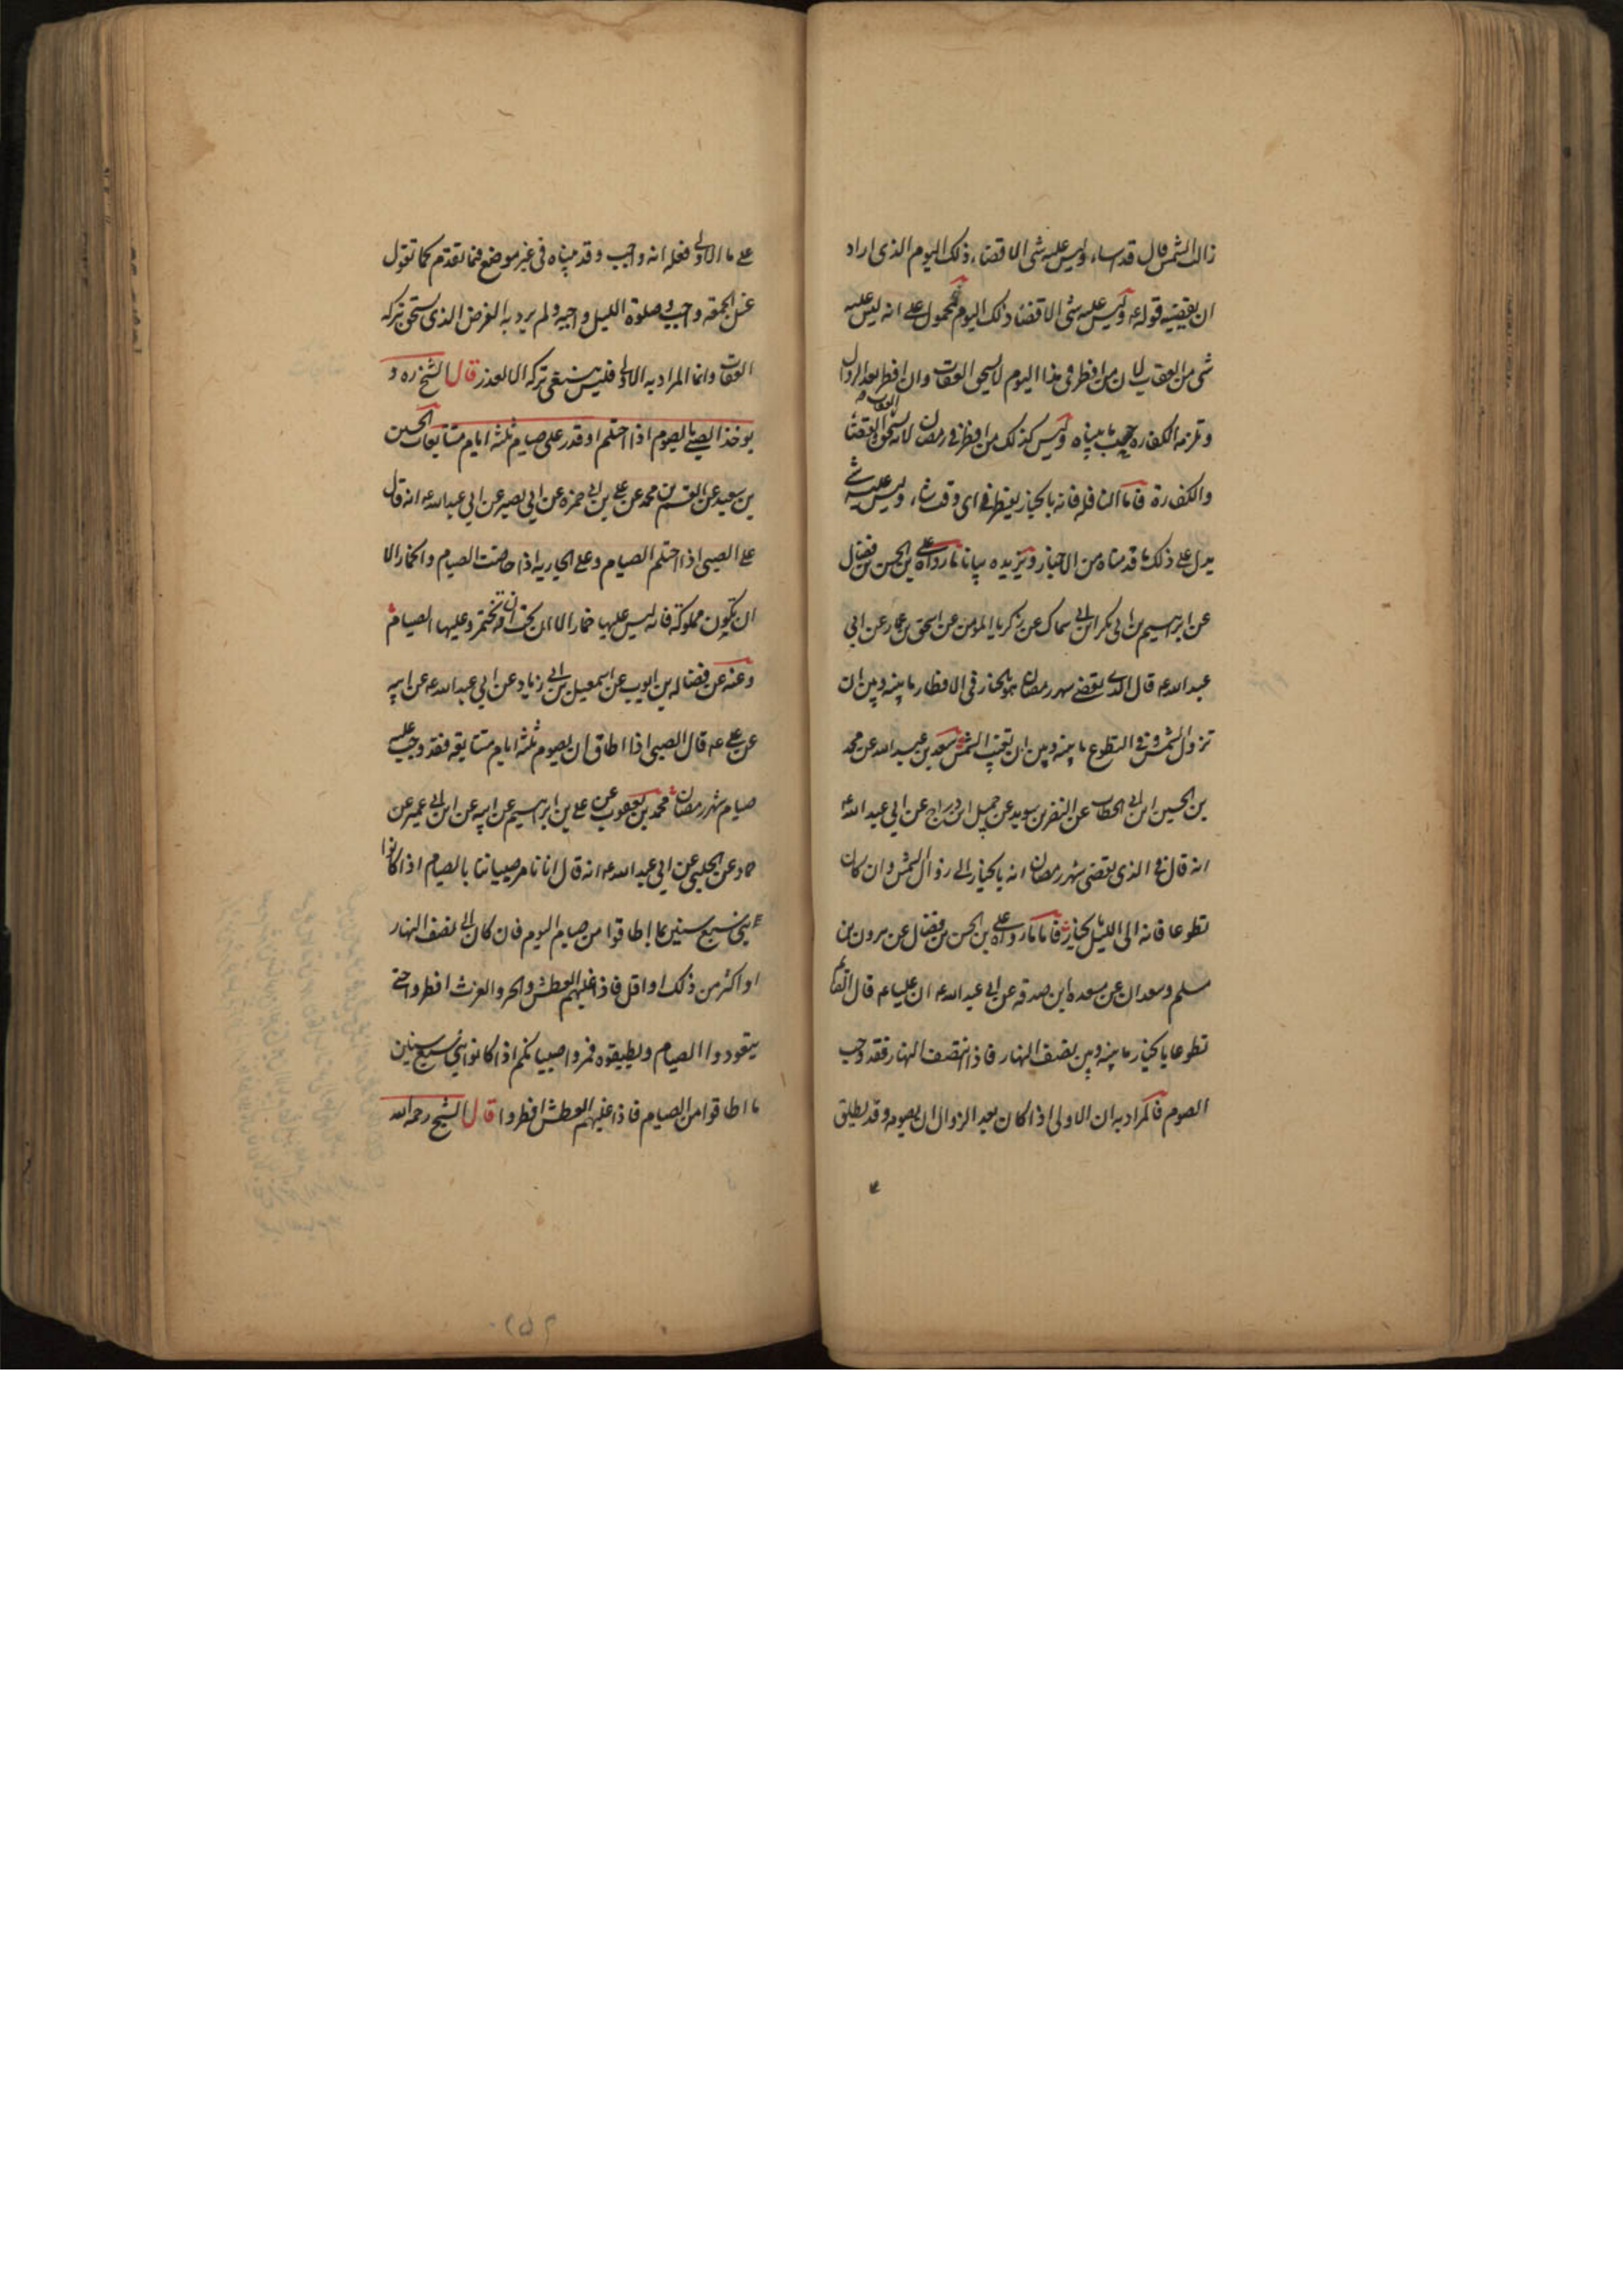 زالت الشمس قال قد اساء وليس عليه شئ الا قضاء ذلك اليوم الذى اراد
ان يقضيه قوله ع وليس عليه شئ الا قضاء ذلك اليوم محمول على انه ليس عليه
شئ من العقاب لان من افطر فى هذا اليوم لا يستحق العقاب وان افطر بعد الزوال
وتلزمه الكفارة حسب ما بيناه وليس كذلك من افطر فى رمضان لانه يستحق العقاب القضاء
والكفارة فاما النافلة فانه بالخيار يفطر فى اى وقت شاء وليس عليه شئ
يدل على ذلك ما قدمناه من الاخبار ويزيده بيانا ما رواه على بن الحسن بن فضال
عن ابراهيم بن ابى بكر ابن ابى سماك عن زكريا المومن عن اسحق بن عمار عن ابى
عبد الله ع قال الذى يقضى شهر رمضان هو بالخيار فى الافطار ما بينه وبين ان
تزول الشمس وفى التطوع ما بينه وبين ان تغيب الشمس سعد بن عبد الله عن محمد
بن الحسين ابن ابى الخطاب عن النضر بن سويد عن جميل ابن دراج عن ابى عبد الله ع
انه قال فى الذى يقضى شهر رمضان انه بالخيار الى زوال الشمس وان كان
تطوعا فانه الى الليل بالخيار فاما ما رواه على بن الحسن بن فضال عن هرون بن
مسلم وسعدان عن مسعدة ابن صدقة عن ابى عبد الله ع ان عليا ع قال الصائم
تطوعا بالخيار ما بينه وبين نصف النهار فاذا انتصف النهار فقد وجب
الصوم فالمراد به ان الاولى اذا كان بعد الزوال ان يصومه وقد يطلق
على ما الاولى فعله انه واجب وقد بيناه فى غير موضع فيما تقدم كما تقول
غسل الجمعة واجب وصلوة الليل واجبة ولم يريد به الفرض الذى يستحق تركه
العقاب وانما المراد به الاولى فليس ينبغى تركه الا لعذر قال الشيخ ره و
يوخذ الصبى بالصوم اذا احتلم او قدر على صيام ثلثة ايام متتابعات الحسين
بن سعيد عن القسم بن محمد عن على بن ابى حمزة عن ابى بصير عن ابى عبد الله ع انه قال
على الصبى اذا احتلم الصيام وعلى الجارية اذا حاضت الصيام والخمار الا
ان تكون مملوكة فانه ليس عليها خمار الا ان تحب ان تختمر وعليها الصيام
وعنه عن فضالة بن ايوب عن اسمعيل بن ابى زياد عن ابى عبد الله ع عن ابيه
عن على ع قال الصبى اذا اطاق ان يصوم ثلثة ايام متتابعة فقد وجب عليه
صيام شهر رمضان محمد بن يعقوب عن على بن ابرهيم عن ابيه عن ابن ابى عمير عن
حماد عن الحلبى عن ابى عبد الله ع انه قال انا نامر صبياننا بالصيام اذا كانوا
بنى سبع سنين بما اطاقوا من صيام اليوم فان كان الى نصف النهار
او اكثر من ذلك او اقل فاذا غلبهم العطش والحر والغرث افطروا حتى
يتعودوا الصيام ويطيقوه فمروا صبيانكم اذا كانوا بنى سبع سنين
ما اطاقوا من الصيام فاذا غلبهم العطش افطروا قال الشيخ رحمه الله